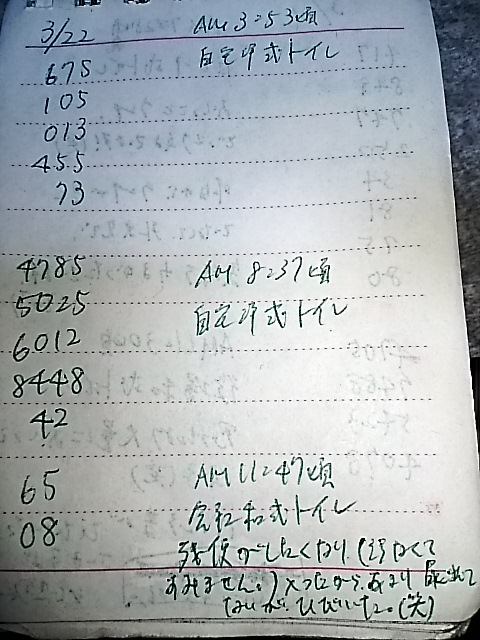 3/22 AM 3:53頃
675 自宅洋式トイレ
105
013
455
73
4785 AM 8:37頃
5025 自宅洋式トイレ
6012
8448
42
65 AM 11:47頃
08 会社和式トイレ
残便がしたくなり(汚なくて
すみません。)
ないが、ひびいた。(笑)